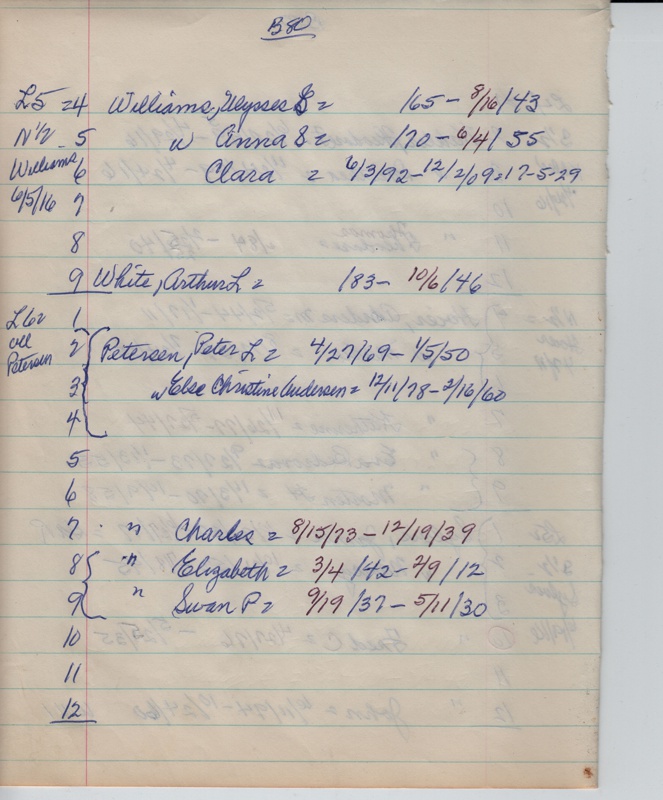 B80
L5 = 4 Williams, Ulysses S = /65 - 8/16/43
N 1/2 - 5 w Anna S = /70 - 6/4/55
Williams 6 Clara = 6/3/92 - 12/2/09 = 17-5-29
6/5/16 7
8
9 White, Arthur L = /83 - 10/6/46
L6 = 1
all 2 Petersen, Peter L = 4/27/69 - 1/5/50
Petersen
3 w Else Christine Andersen = 12/11/78 - 2/16/60
4
5
6
7 " Charles = 8/15/73 - 12/19/39
8 " Elizabeth = 3/4/42 - 2/9/12
9 " Swan P = 9/19/37 - 5/11/30
10
11
12